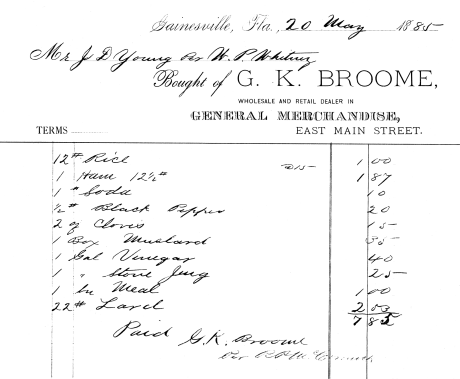 Gainesville, Fla., 20 May 1885
Mr J D Young as W. P. Whitney
Bought of G. K. BROOME,
WHOLESALE AND RETAIL DEALER IN
GENERAL MERCHANDISE,
TERMS EAST MAIN STREET.
12# Rice 1 00
1 Ham 12½# @15 1 87
1 # Soda 10
½# Black Pepper 20
2 oz Cloves 15
1 Box Mustard 35
1 Gal Vinegar 40
1 " Stone Jug 25
1 bu Meal 1 00
22# Lard 2 53
7 85
Paid G. K. Broome
Per